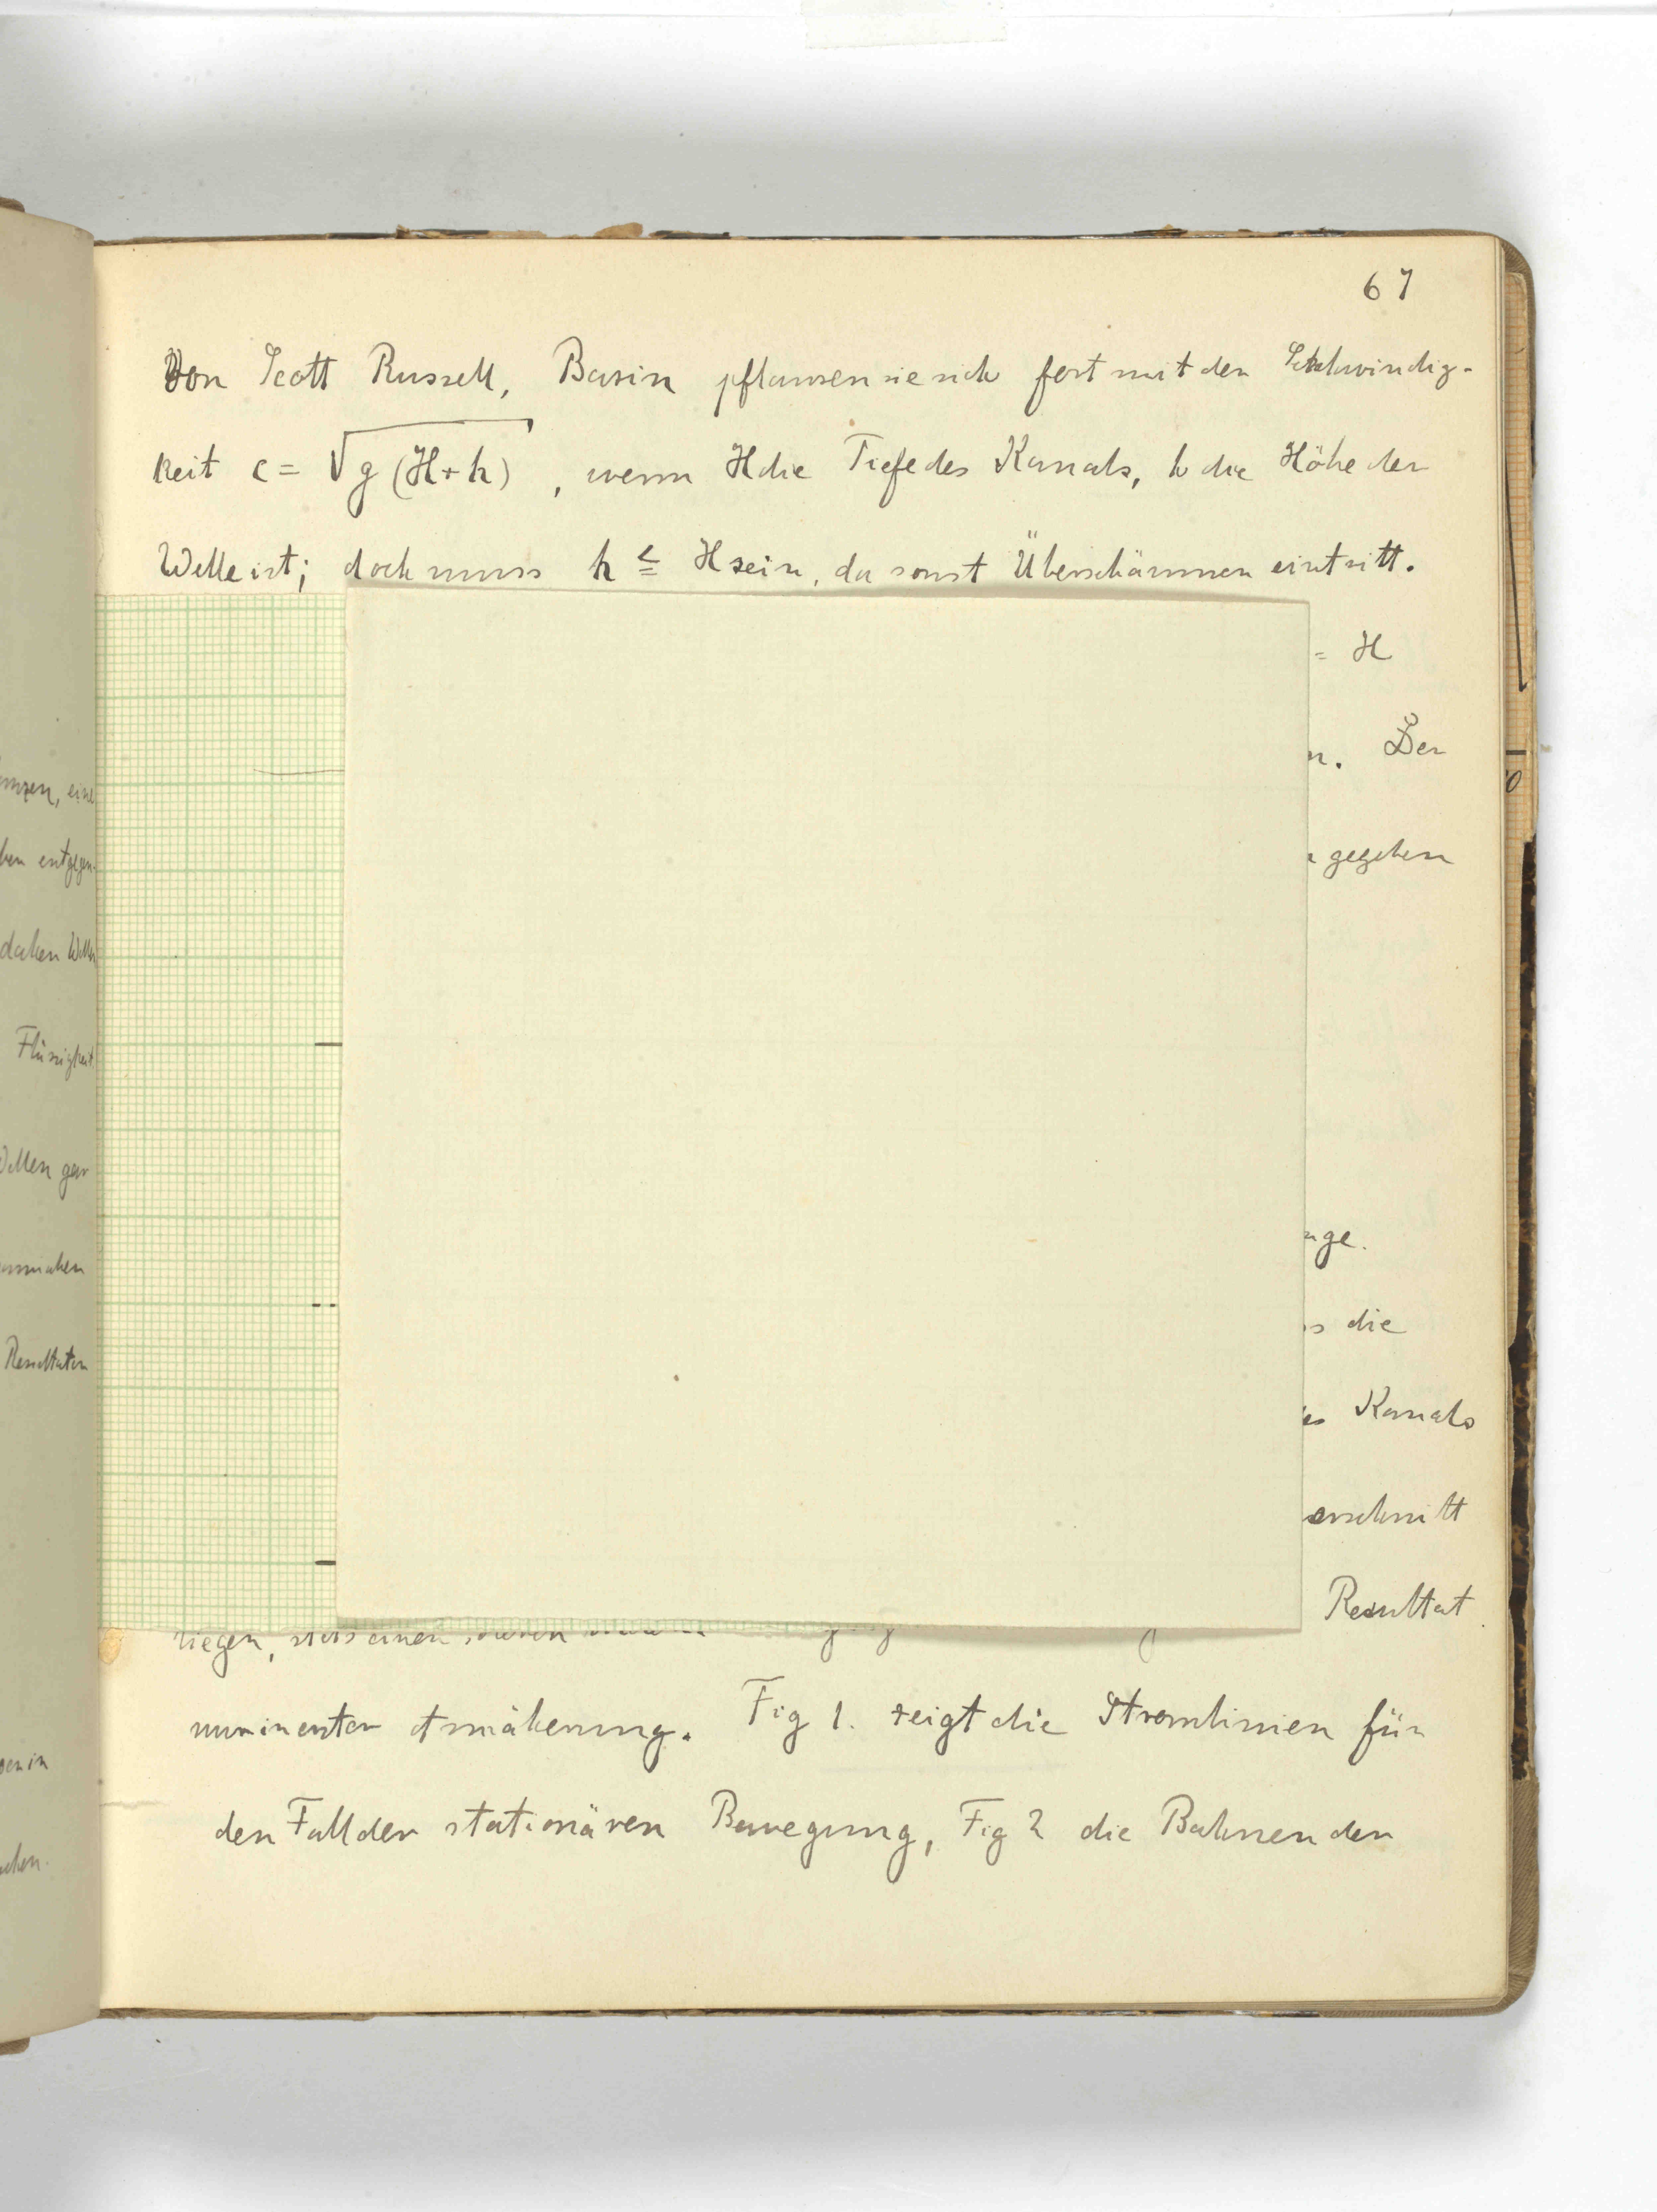 67
Von Scott Russell, Basin pflanzen sie sich fort mit der Schwindig-
keit c = √g(H+h) , wenn H die Tiefe des Kanals, h die Höhe der
Welle ist; doch muss h ≦ H sein, da sonst Überschäumen eintritt.
= H
n. Der
gegeben
nge.
die
Kanals
erschnitt
Resultat
liegen,
Annäherung. Fig 1. zeigt die Stromlinien für
den Fall der stationären Bewegung, Fig 2 die Bahnen der
entgegen-
daher Wellen
Flüssigkeit
Wellen gar
Resultaten